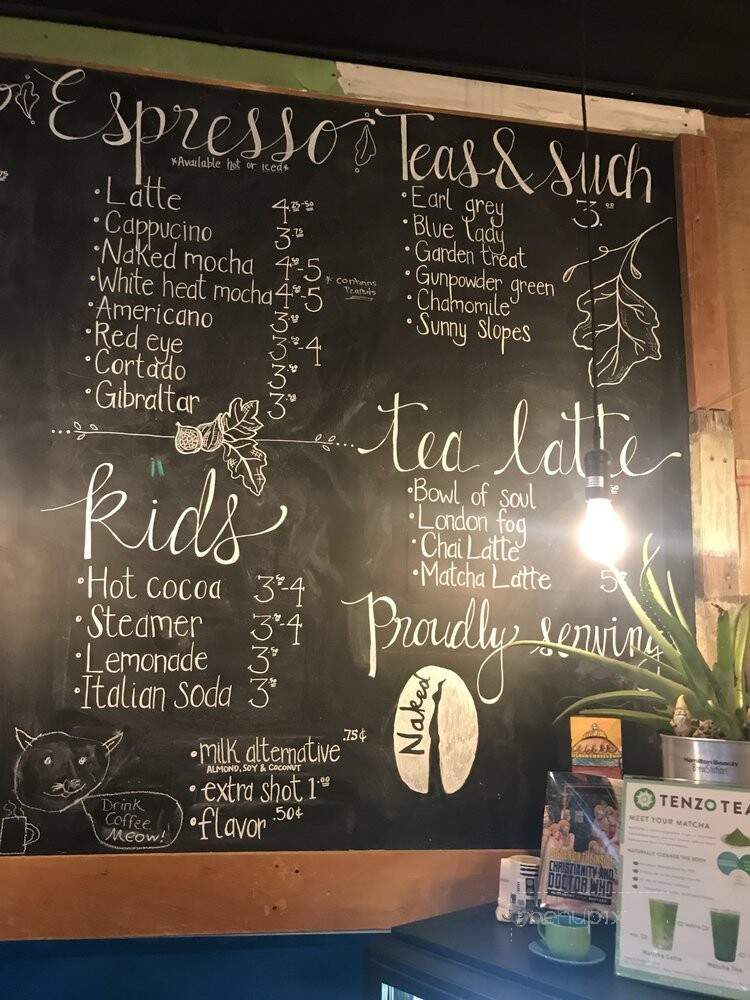 Espresso
*Available hot or iced*
·Latte 4.75-50
·Cappucino 3.75
·Naked mocha 4.50-5
·White heat mocha 4.50-5 *contains Peanuts
·Americano 3.00
·Red eye 3.50-4
·Cortado 3.50
·Gibraltar 3.50
kids
·Hot cocoa 3.50-4
·Steamer 3.50-4
·Lemonade 3.50
·Italian Soda 3.50
·milk alternative .75¢
ALMOND, SOY & COCONUT
·extra shot 1.00
·flavor .50¢
Drink
Coffee
Meow!
Teas & such
·Earl grey 3.00
·Blue lady
·Garden treat
·Gunpowder green
·Chamomile
·Sunny slopes
tea latte
·Bowl of soul
·London fog
·Chai Latte
·Matcha Latte
Proudly serving
Naked
CHRISTIANITY AND
DOCTOR WHO
Hamilton Beach
TENZO TEA
MEET YOUR MATCHA
NATURALLY CLEANSE THE BODY
Matcha Latte
Matcha Tea
menupix